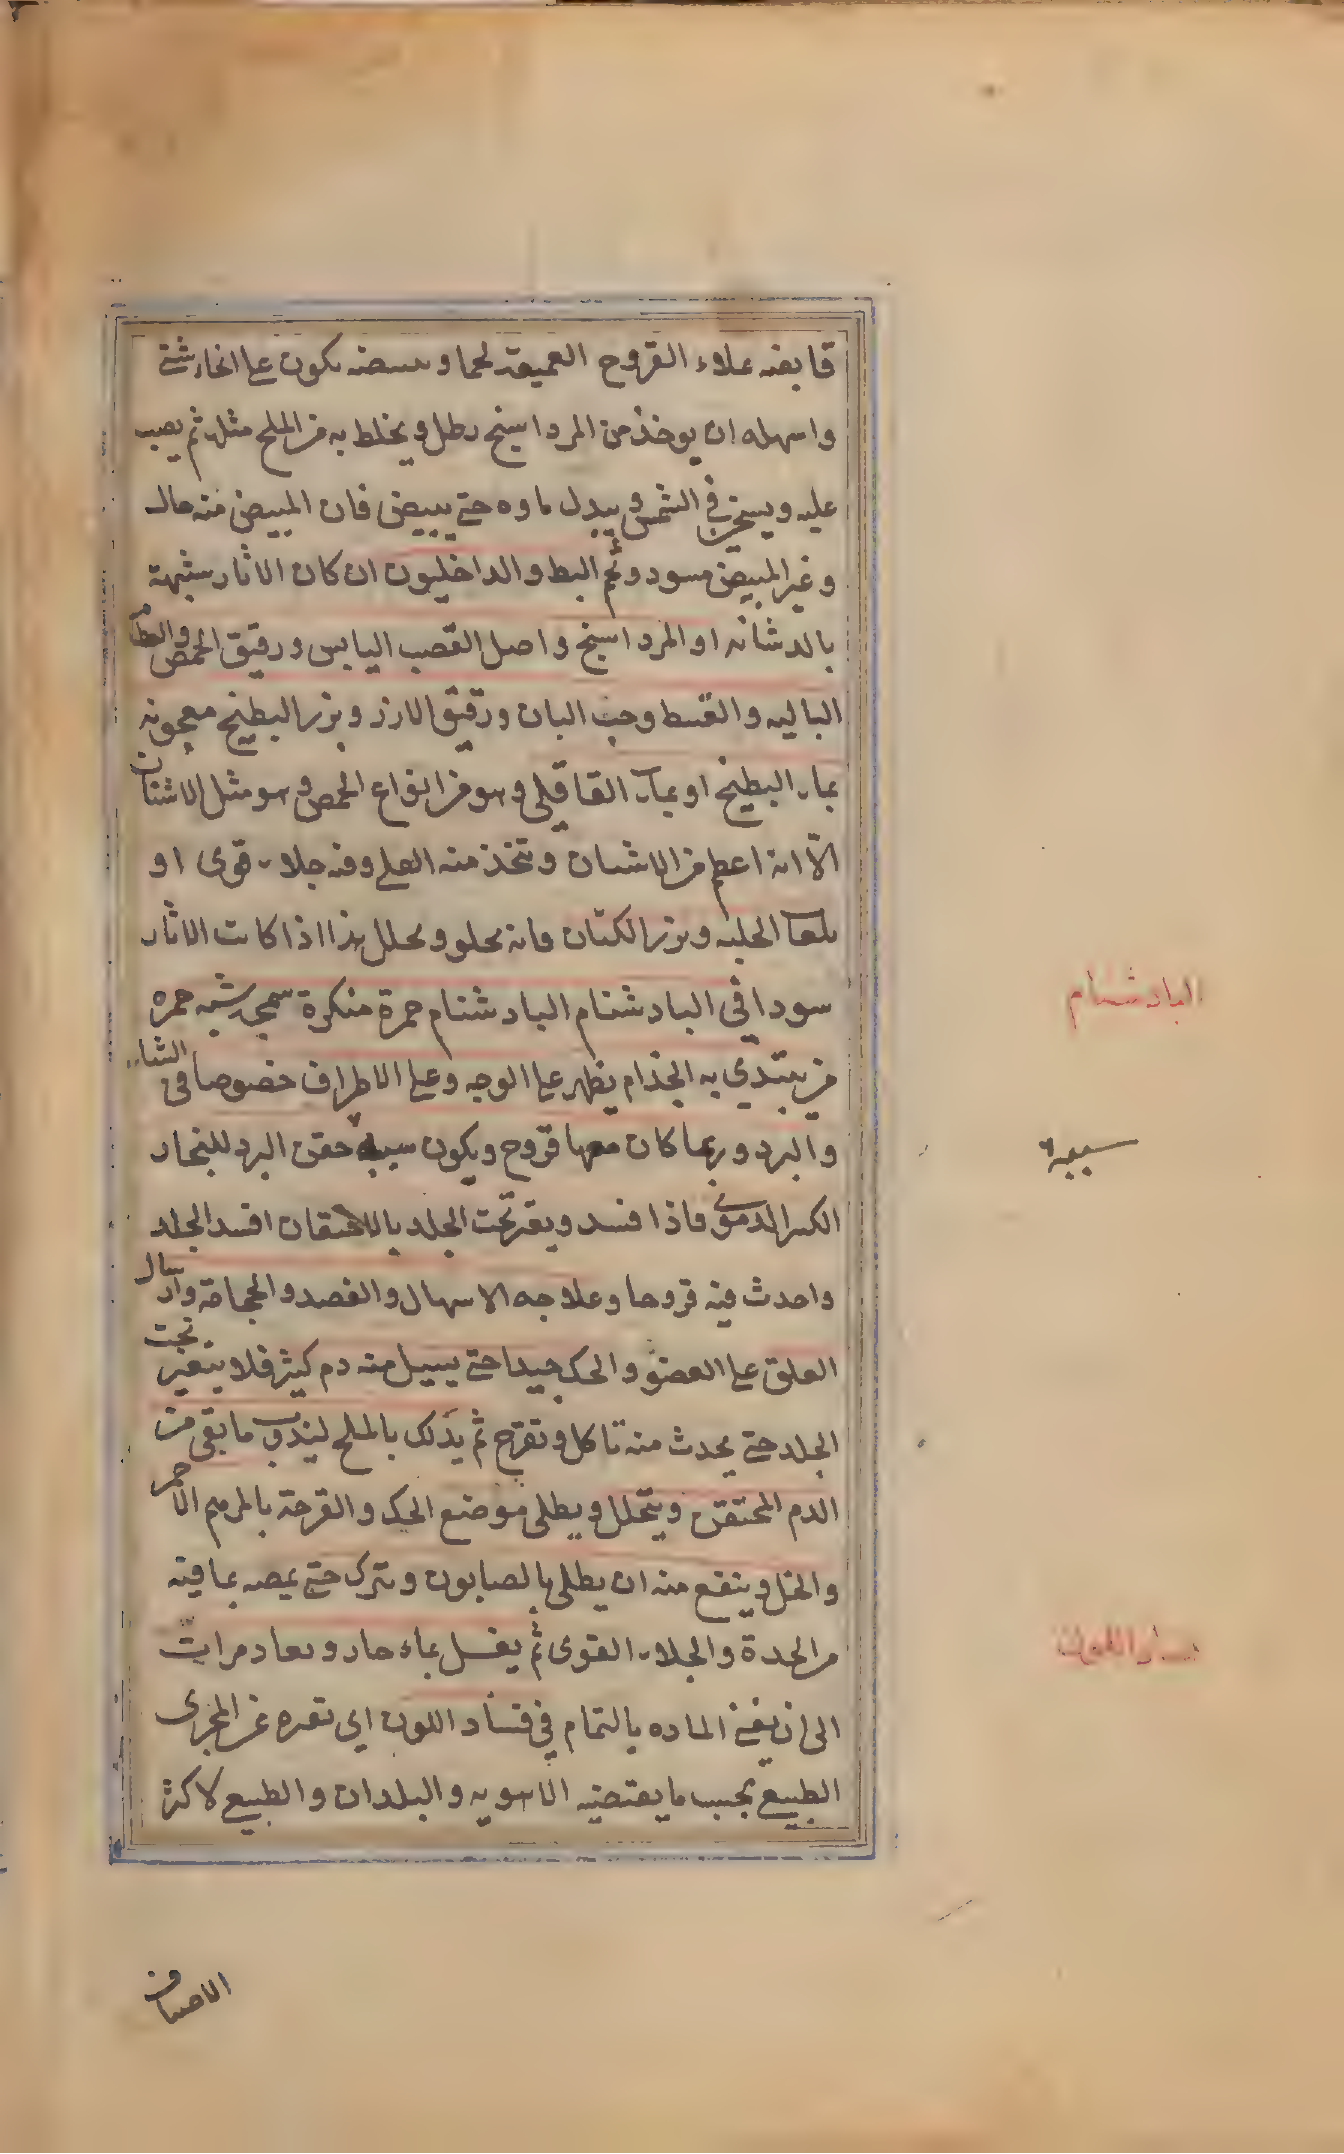 قابضه يملاء القروح العميقة لحما و تبييضه يكون على انحاء شتى
واسهله ان يوخذ من المرداسنج رطل و يخلط به من الملح مثله ثم يصب
عليه ويسخن في الشمس و يبدل ماوه حتى يبيض فان المبيض منه جال
وغير المبيض مسود و شحم البط والداخليون ان كان الاثار شبيهة
بالدشانه او المرداسنج و اصل القصب اليابس و دقيق الحمص والعظام
الباليه والقسط وحب البان و دقيق الارز و بزر البطيخ معجونه
بماء البطيخ او بماء القاقلى و هو من انواع الحمص و هو مثل الاشنان
الا انه اعظم من الاشنان و تتخذ منه القلى و فيه جلاء قوى او
بلعاب الحلبه و بزر الكتان فانه يجلو و يحلل هذا اذا كانت الاثار
سودا في البادشنام البادشنام حمرة منكرة سمجه يشبه حمره
من يبتدي به الجذام يظهر على الوجه و على الاطراف خصوصا في الشتاء
والبرد و ربما كان معها قروح و يكون سببه حقن البرد للبخار
الكثير الدموي فاذا فسد و يعفر تحت الجلد بالاحتقان افسد الجلد
واحدث فيه قروحا و علاجه الاسهال والفصد والحجامة وارسال
العلق على العضو والحك جيدا حتى يسيل منه دم كثير فلا يتغير تحت
الجلد حتى يحدث منه تاكل و تقرح ثم يدلك بالملح ليذوب ما بقى من
الدم المحتقن و يتحلل و يطلى موضع الحك والقرحة بالمرهم الاحمر
والخل و ينفع منه ان يطلى بالصابون و يترك حتى يمصه بما فيه
من الحدة والجلاء القوى ثم يغسل بماء حار و يعاد مرات
الى ان يفنى الماده بالتمام في فساد اللون اي تغيره عن المجرى
الطبيعي بحسب ما يقتضيه الاهويه والبلدان والطبيعى لاكثر
البادشنام
سببه
فساد اللون
الاصناف